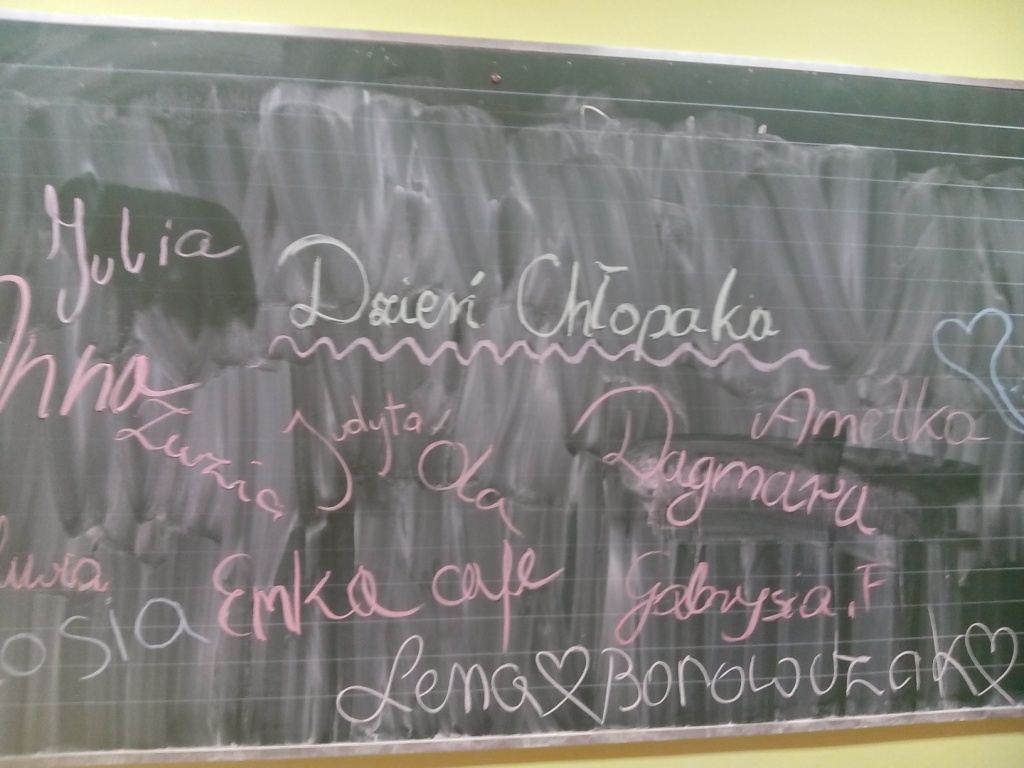 Julia
Dzień Chłopaka
Anna
Zuzia
Judyta
Ola
Dagmara
Amelka
Emka cafe
Gabrysia.F
osia
Lena Borowczak